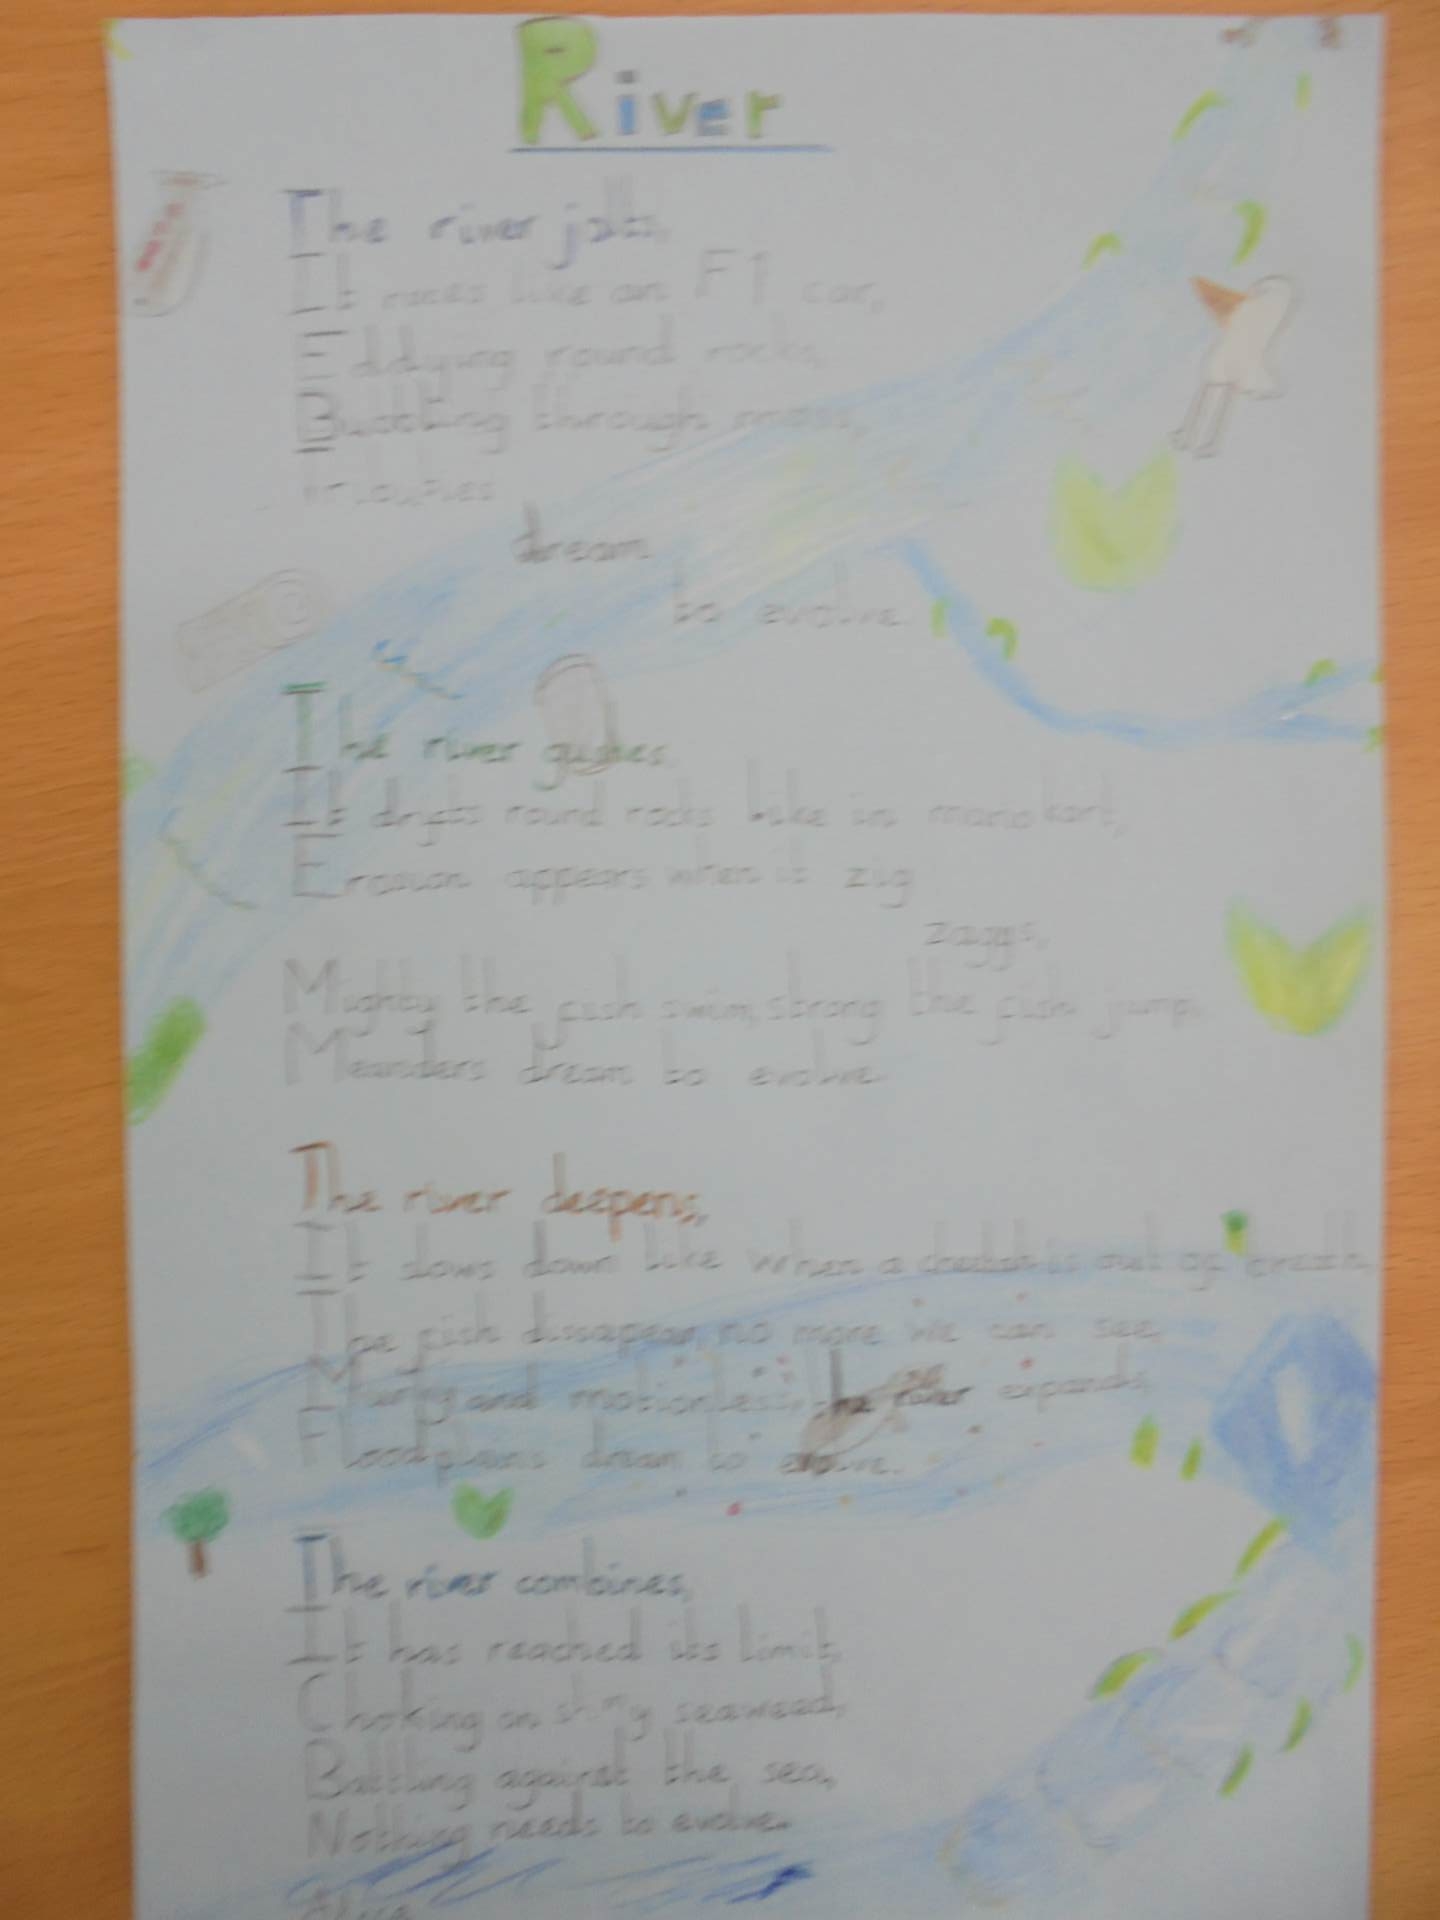 River
The river jolts,
It races like an F1 car,
Eddying round rocks,
Bubbling through moss,
dream
to evolve.
The river gushes
It drifts round rocks like in mario kart,
Erosion appears when it zig
zaggs,
Mighty the fish swim, strong the fish jump,
Meanders dream to evolve.
The river deepens,
It slows down like when a cheetah is out of breath
The fish dissapear, no more we can see,
Murky and motionless, the river expands,
Floodplains dream to evolve.
The river combines,
It has reached its limit,
Choking on seaweed,
Battling against the sea,
Nothing needs to evolve.